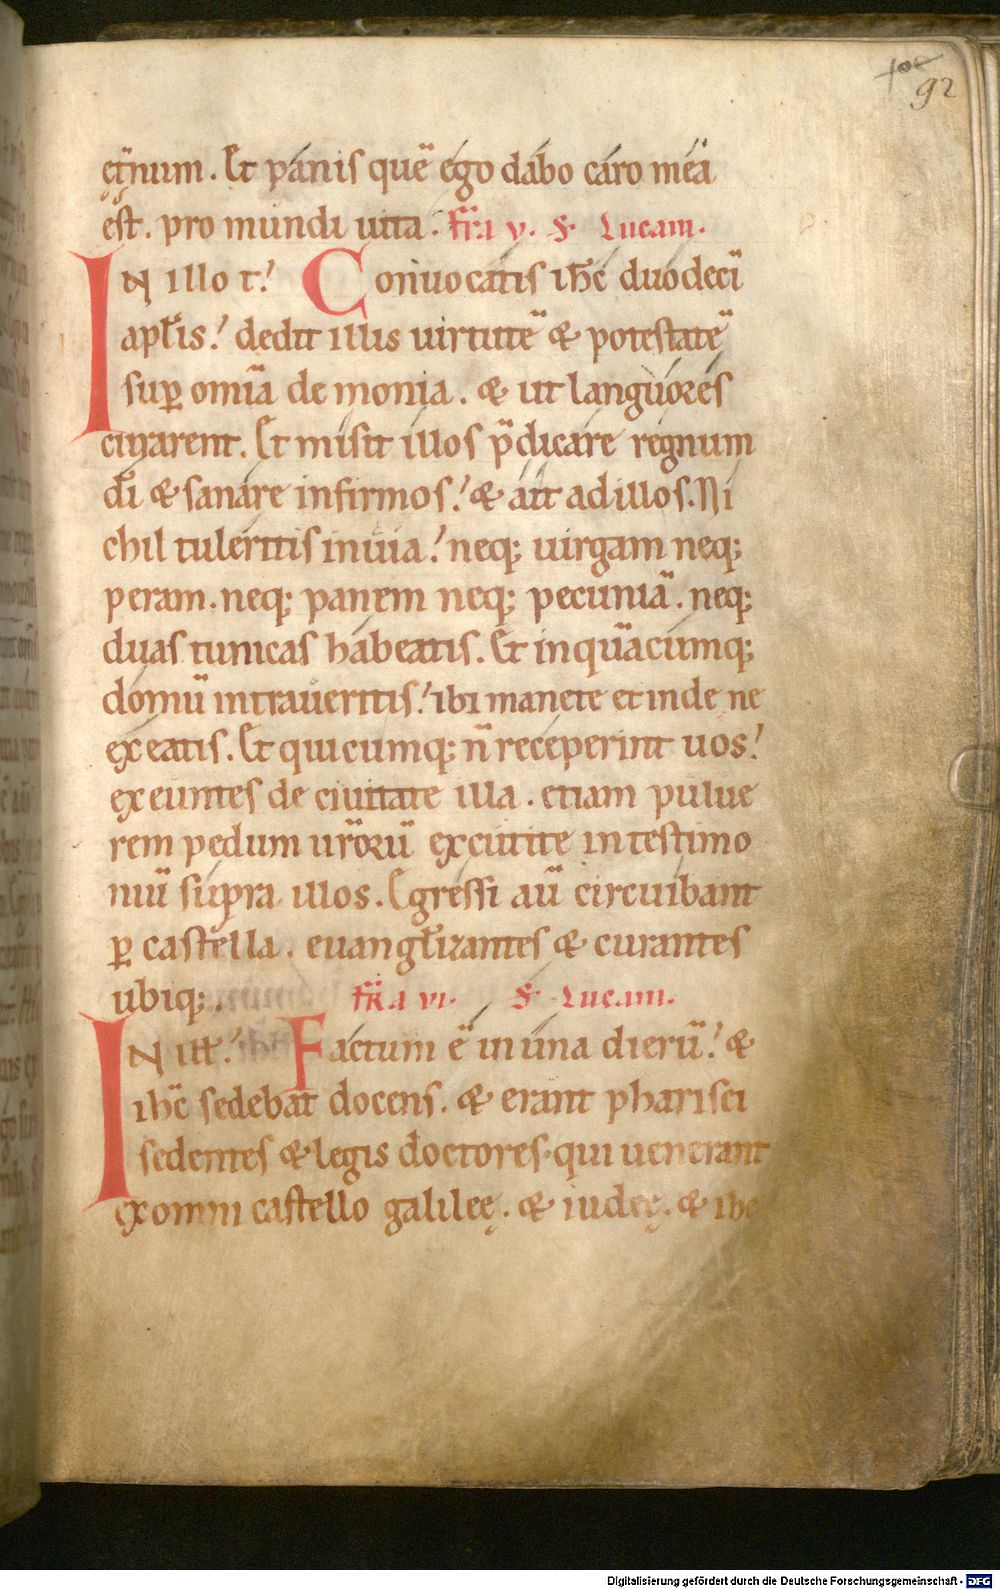 100
92
et̄num. Et panis quē ego dabo caro mea
est. pro mundi uita. fr̄ia v. S. Lucam.
IN illo t. Conuocatis ih̄c duodecī
apl̄is. dedit illis uirtutē & potestatē
sup̱ omīa demonia. & ut languores
curarent. Et misit illos p̄dicare regnum
dī & sanare infirmos. & ait ad illos. Ni
chil tuleritis in uia. neq; uirgam neq;
peram. neq; panem neq; pecuniā. neq;
duas tunicas habeatis. Et in quācumq;
domū intraueritis. ibi manete et inde ne
exeatis. Et quicumq; n̄ receperint uos.
exeuntes de ciuitate illa. etiam pulue
rem pedum ur̄orū excutite in testimo
niū supra illos. Egressi aū circuibant
p̱ castella. euangl̄izantes & curantes
ubiq;. fr̄ia vi. S. Lucam.
IN ill̄. Factum ē in una dierū. &
ih̄c sedebat docens. & erant pharisei
sedentes & legis doctores. qui uenerant
ex omni castello galileę. & iudeę. & ihe
Digitalisierung gefördert durch die Deutsche Forschungsgemeinschaft - DFG